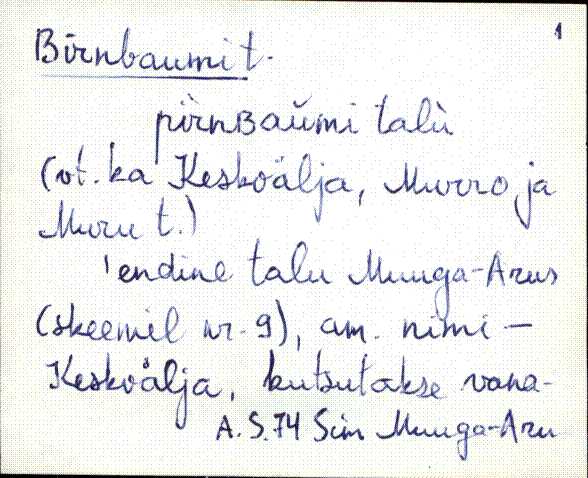 1
Birnbaumi t.
pìrnBaùmi talù
(vt. ka Keskvälja, Murro ja
Muru t.)
'endine talu Muuga-Arus
(skeemil nr. 9), am. nimi –
Keskvälja, kutsutakse vana-
A.S.74 Sim Muuga-Aru